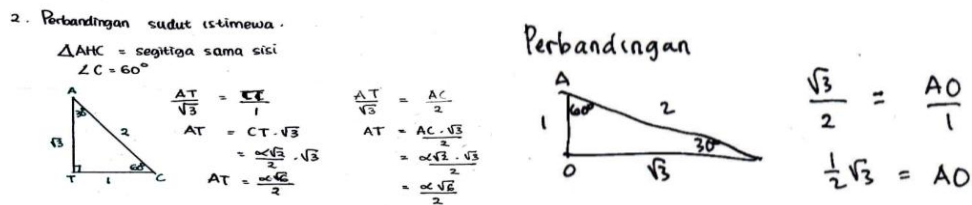 2. Perbandingan sudut istimewa.
△AHC = segitiga sama sisi
∠C = 60°
A
30°
√3
2
60°
T
1
C
AT/√3 = CT/1
AT = CT . √3
= α√2/2 . √3
AT = α√6/2
AT/√3 = AC/2
AT = AC . √3/2
= α√2 . √3/2
= α√6/2
Perbandingan
A
60°
1
2
30°
O
√3
√3/2 = AO/1
1/2 √3 = AO